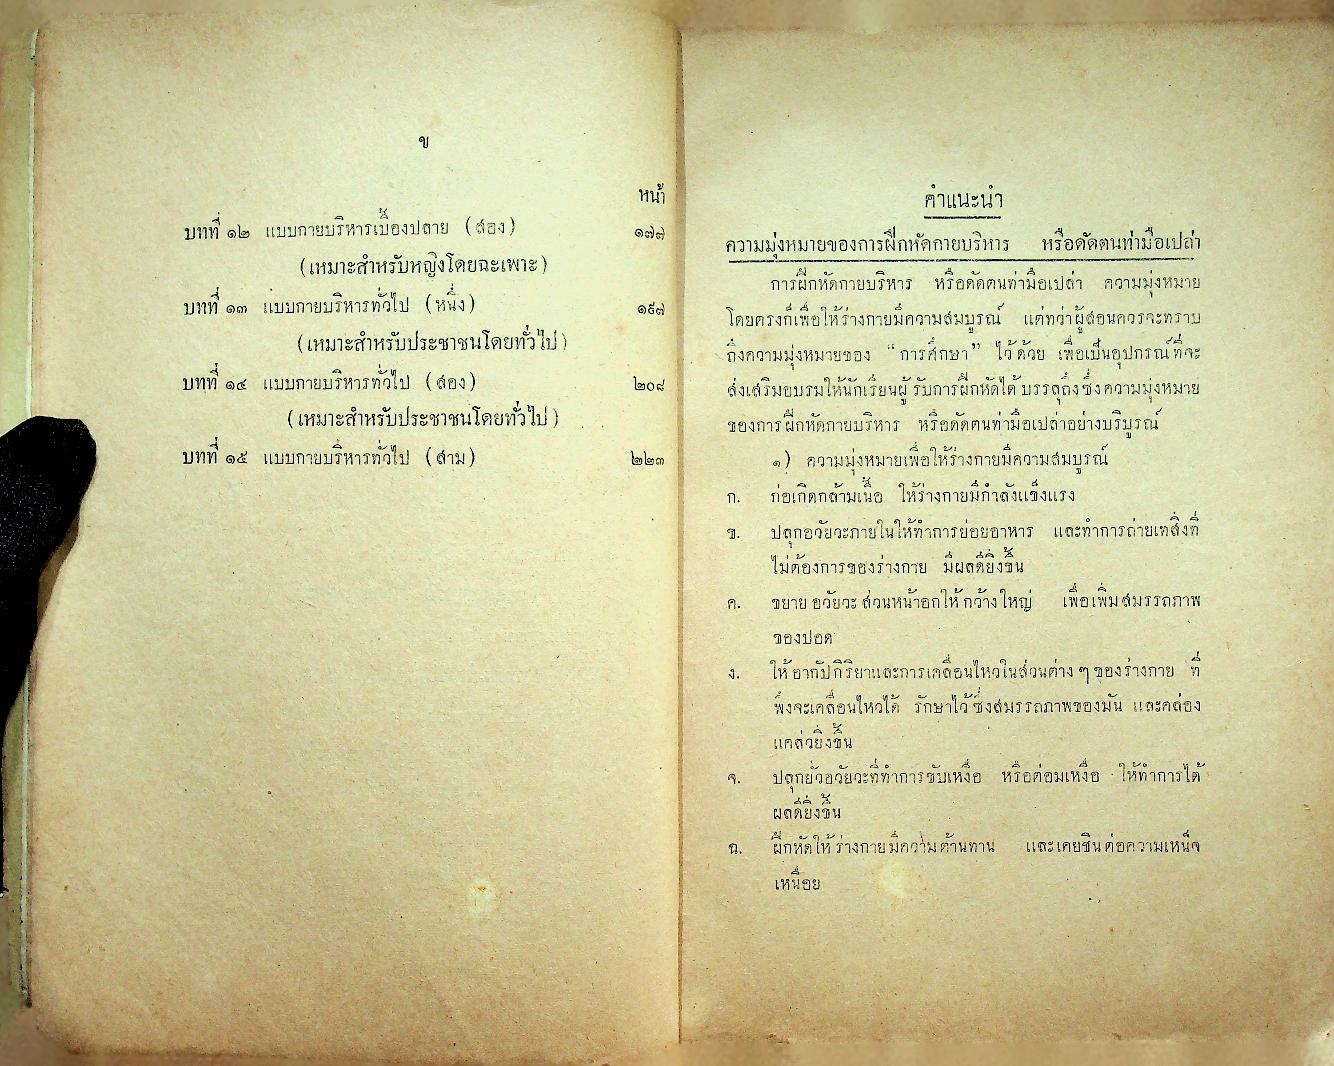 ข
หน้า
บทที่ ๑๒ แบบกายบริหารเบื้องปลาย (สอง) ๑๗๗
(เหมาะสำหรับหญิงโดยฉะเพาะ)
บทที่ ๑๓ แบบกายบริหารทั่วไป (หนึ่ง) ๑๙๗
(เหมาะสำหรับประชาชนโดยทั่วไป)
บทที่ ๑๔ แบบกายบริหารทั่วไป (สอง) ๒๐๘
(เหมาะสำหรับประชาชนโดยทั่วไป)
บทที่ ๑๕ แบบกายบริหารทั่วไป (สาม) ๒๒๓
คำแนะนำ
ความมุ่งหมายของการฝึกหัดกายบริหาร หรือดัดตนท่ามือเปล่า
การฝึกหัดกายบริหาร หรือดัดตนท่ามือเปล่า ความมุ่งหมาย
โดยตรงก็เพื่อให้ร่างกายมีความสมบูรณ์ แต่ทว่าผู้สอนควรจะทราบ
ถึงความมุ่งหมายของ “การศึกษา” ไว้ด้วย เพื่อเป็นอุปกรณ์ที่จะ
ส่งเสริมอบรมให้นักเรียนผู้รับการฝึกหัดได้บรรลุถึงซึ่งความมุ่งหมาย
ของการฝึกหัดกายบริหาร หรือดัดตนท่ามือเปล่าอย่างบริบูรณ์
๑) ความมุ่งหมายเพื่อให้ร่างกายมีความสมบูรณ์
ก. ก่อเกิดกล้ามเนื้อ ให้ร่างกายมีกำลังแข็งแรง
ข. ปลุกอวัยวะภายในให้ทำการย่อยอาหาร และทำการถ่ายเทสิ่งที่
ไม่ต้องการของร่างกาย มีผลดียิ่งขึ้น
ค. ขยายอวัยวะส่วนหน้าอกให้กว้างใหญ่ เพื่อเพิ่มสมรรถภาพ
ของปอด
ง. ให้อากัปกิริยาและการเคลื่อนไหวในส่วนต่าง ๆ ของร่างกาย ที่
พึงจะเคลื่อนไหวได้ รักษาไว้ซึ่งสมรรถภาพของมัน และคล่อง
แคล่วยิ่งขึ้น
จ. ปลุกยั่วอวัยวะที่ทำการขับเหงื่อ หรือต่อมเหงื่อ ให้ทำการได้
ผลดียิ่งขึ้น
ฉ. ฝึกหัดให้ร่างกายมีความต้านทาน และเคยชินต่อความเหน็จ
เหนื่อย